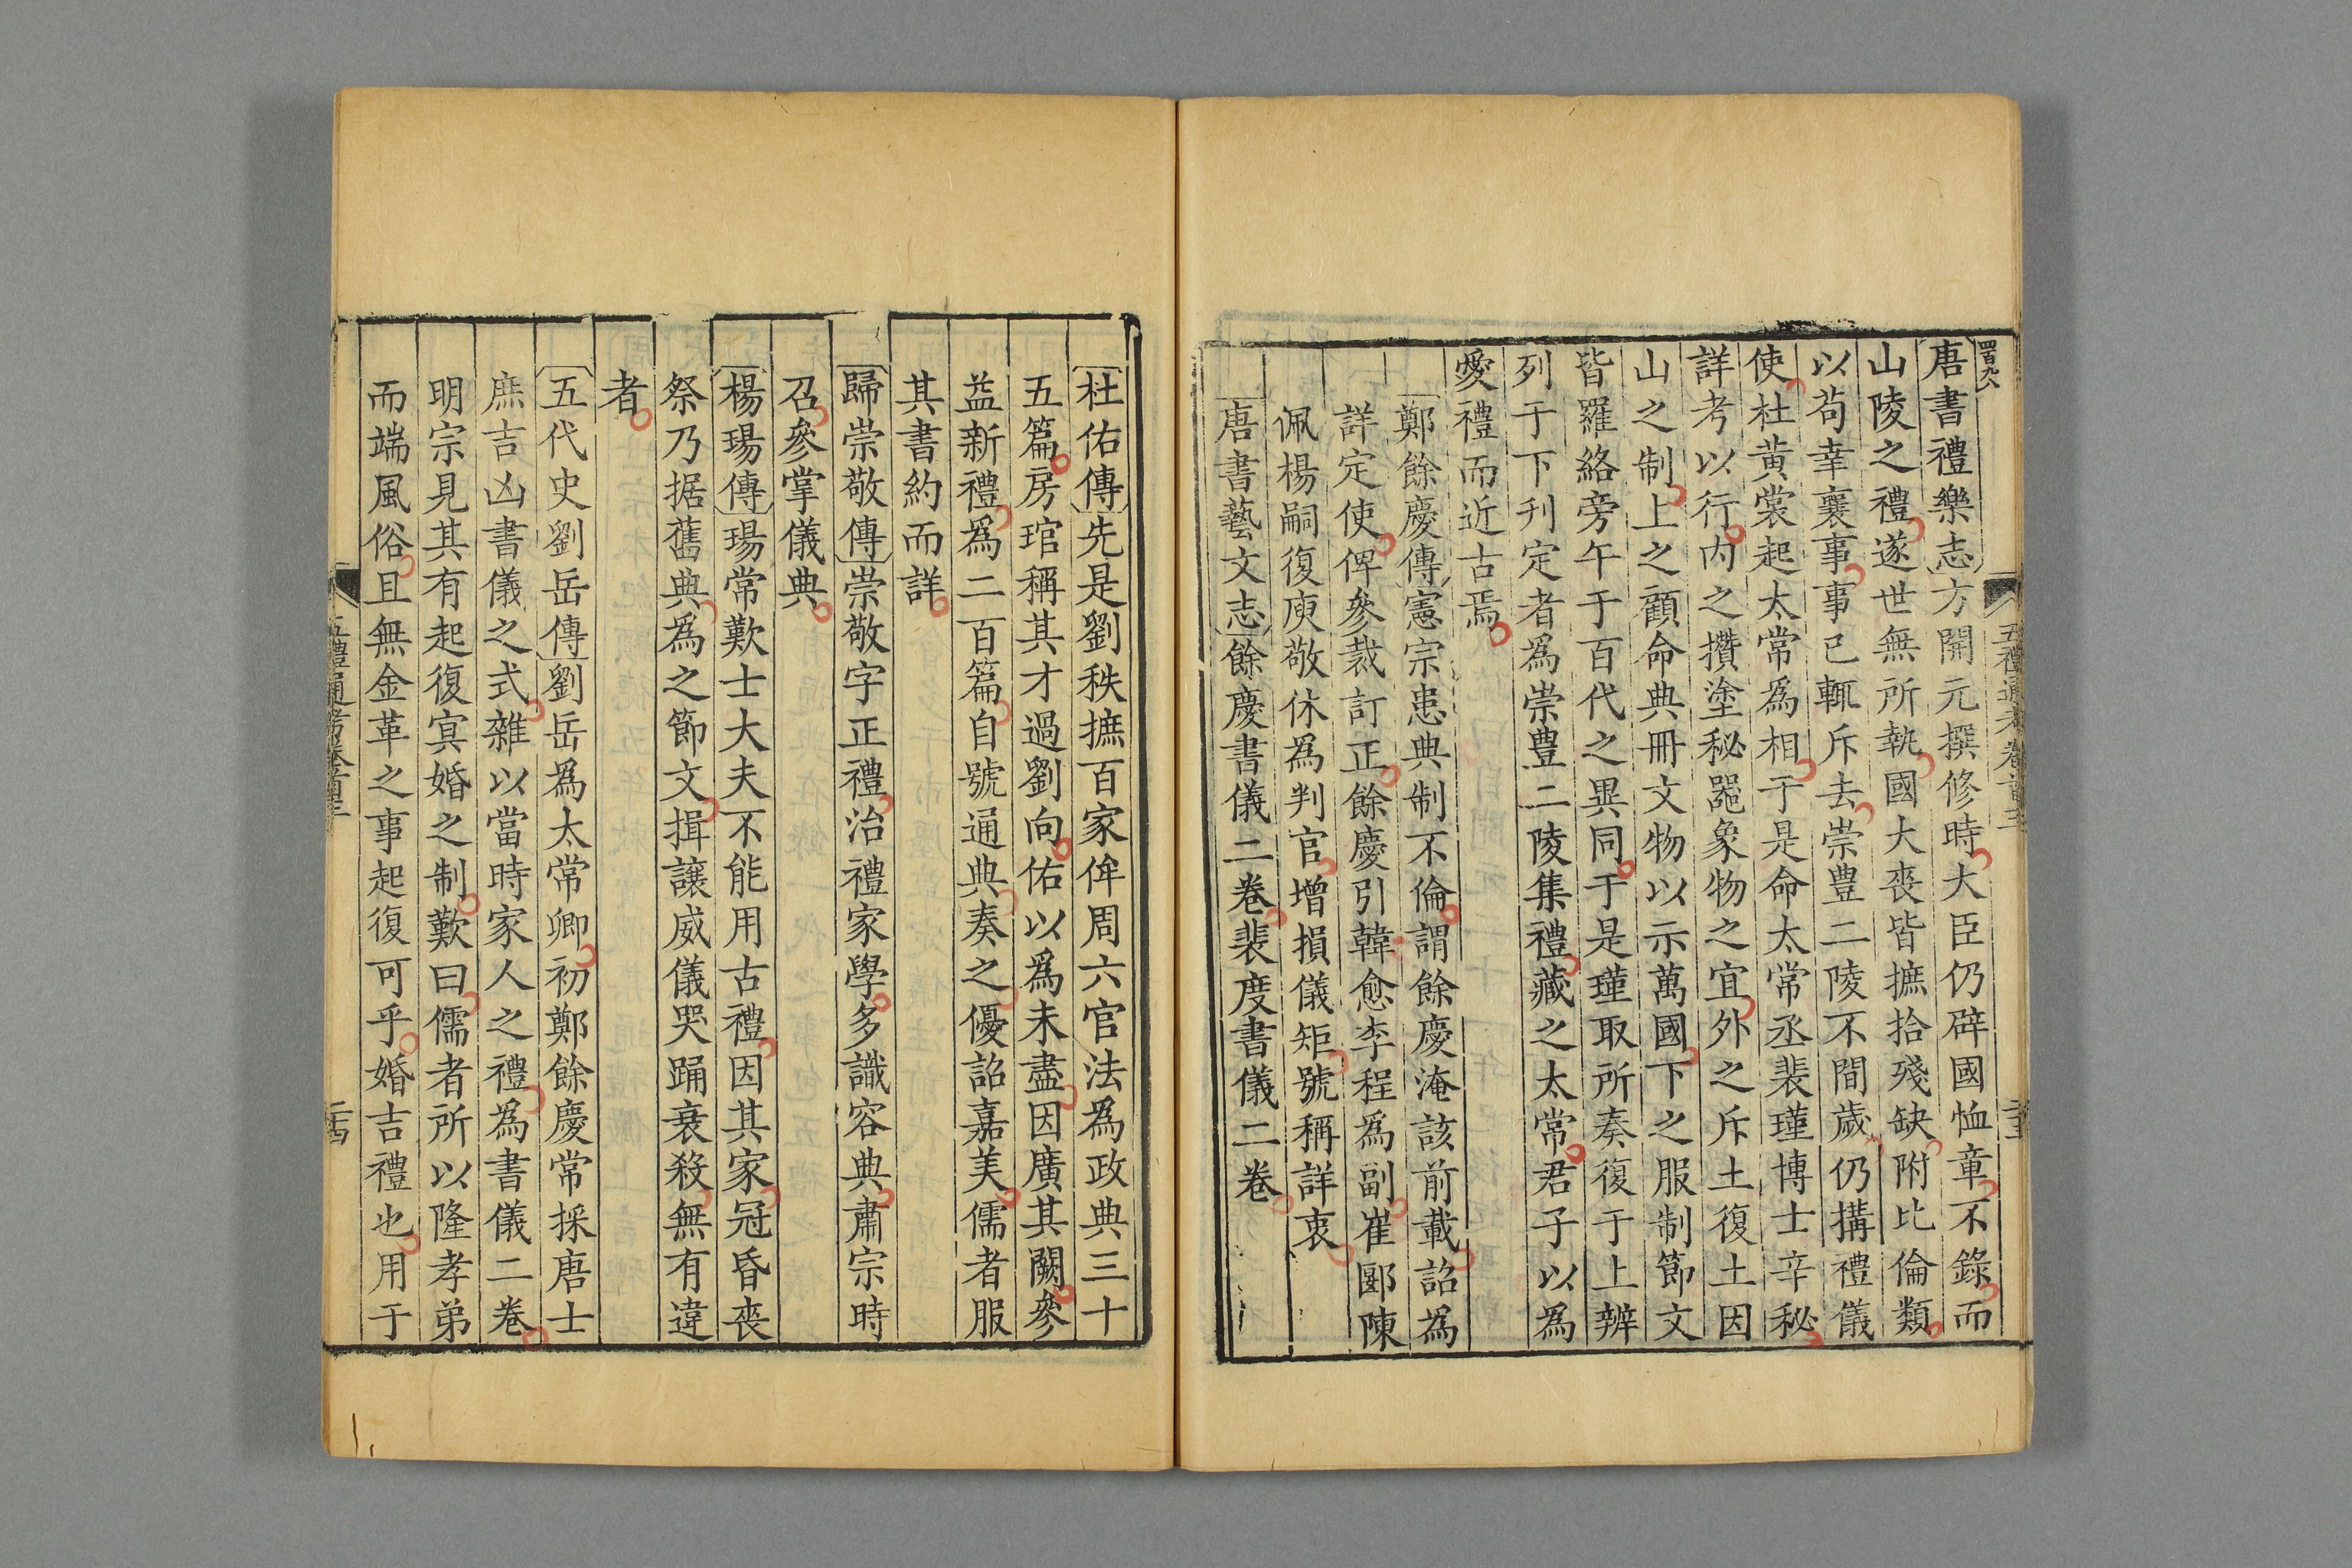 四百九六
唐書禮樂志方開元撰修時大臣仍硸國恤章不錄而
山陵之禮遂世無所執國大喪皆摭拾殘缺附比倫類
以苟幸襄事事已輒斥去崇豊二陵不間歲仍搆禮儀
使杜黄裳起太常爲相于是命太常丞裴瑾博士辛秘
詳考以行内之攢塗秘器象物之宜外之斥土復土因
山之制上之顧命典冊文物以示萬國下之服制節文
皆羅絡旁午于百代之異同于是瑾取所奏復于上辨
列于下刋定者爲崇豊二陵集禮藏之太常君子以爲
愛禮而近古焉
鄭餘慶傳憲宗患典制不倫謂餘慶淹該前載詔爲
詳定使俾參裁訂正餘慶引韓愈李程爲副崔郾陳
佩楊嗣復庾敬休爲判官增損儀矩號稱詳衷
唐書藝文志餘慶書儀二卷裴度書儀二卷
五禮通考卷首三
二十三
杜佑傳先是劉秩摭百家侔周六官法爲政典三十
五篇房琯稱其才過劉向佑以爲未盡因廣其闕參
益新禮爲二百篇自號通典奏之優詔嘉美儒者服
其書約而詳
歸崇敬傳崇敬字正禮治禮家學多識容典肅宗時
召參掌儀典
楊瑒傳瑒常歎士大夫不能用古禮因其家冠昏喪
祭乃据舊典爲之節文揖讓威儀哭踊衰殺無有違
者
五代史劉岳傳劉岳爲太常卿初鄭餘慶常採唐士
庶吉凶書儀之式雜以當時家人之禮爲書儀二卷
明宗見其有起復冥婚之制歎曰儒者所以隆孝弟
而端風俗且無金革之事起復可乎婚吉禮也用于
五禮通考卷首三
二十四